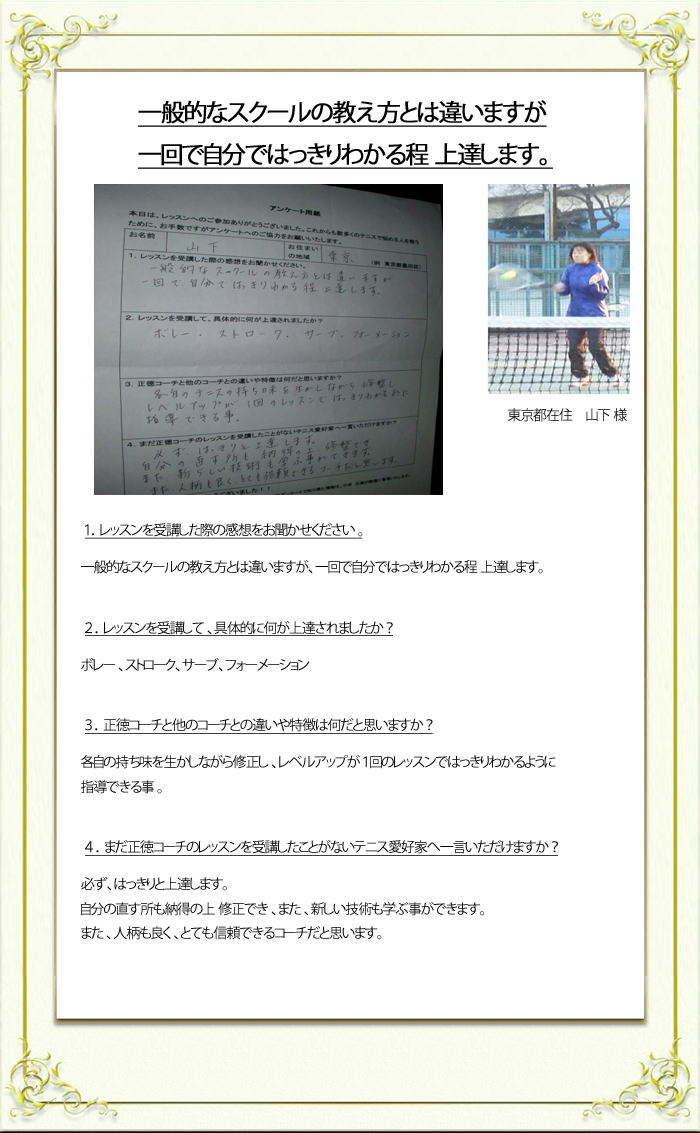 一般的なスクールの教え方とは違いますが
一回で自分ではっきりわかる程 上達します。
アンケート用紙
本日は、レッスンへのご参加ありがとうございました。これからも数多くのテニスで悩める人を救う
ために、お手数ですがアンケートへのご協力をお願いいたします。
お名前 山下 お住まいの地域 東京
1. レッスンを受講した際の感想をお聞かせください。
一般的なスクールの教え方とは違いますが
一回で自分ではっきりわかる程上達します。
2. レッスンを受講して、具体的に何が上達されましたか？
ボレー、ストローク、サーブ、フォーメーション
3. 正徳コーチと他のコーチとの違いや特徴は何だと思いますか？
各自のテニスの持ち味を生かしながら修整し
レベルアップが1回のレッスンではっきりわかるように
指導できる事。
4. まだ正徳コーチのレッスンを受講したことがないテニス愛好家へ一言いただけますか？
必ず、はっきりと上達します。
自分の直す所も納得の上 修整でき
また 新らしい技術も学ぶ事ができます。
また、人柄も良く、とても信頼できるコーチだと思います。
東京都在住　山下 様
1. レッスンを受講した際の感想をお聞かせください。
一般的なスクールの教え方とは違いますが、一回で自分ではっきりわかる程 上達します。
2. レッスンを受講して、具体的に何が上達されましたか？
ボレー、ストローク、サーブ、フォーメーション
3. 正徳コーチと他のコーチとの違いや特徴は何だと思いますか？
各自の持ち味を生かしながら修正し、レベルアップが1回のレッスンではっきりわかるように
指導できる事。
4. まだ正徳コーチのレッスンを受講したことがないテニス愛好家へ一言いただけますか？
必ず、はっきりと上達します。
自分の直す所も納得の上 修正でき、また、新しい技術も学ぶ事ができます。
また、人柄も良く、とても信頼できるコーチだと思います。